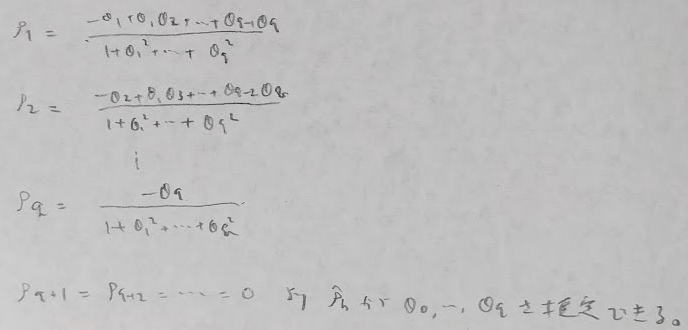 ρ₁ = (-θ₁+θ₁θ₂+⋯+θq-1θq)/(1+θ₁²+⋯+θq²)
ρ₂ = (-θ₂+θ₁θ₃+⋯+θq-2θq)/(1+θ₁²+⋯+θq²)
⋮
ρq = (-θq)/(1+θ₁²+⋯+θq²)
ρq+1 = ρq+2 = ⋯ = 0 より ρ̂h から θ₀,⋯, θq を推定できる。